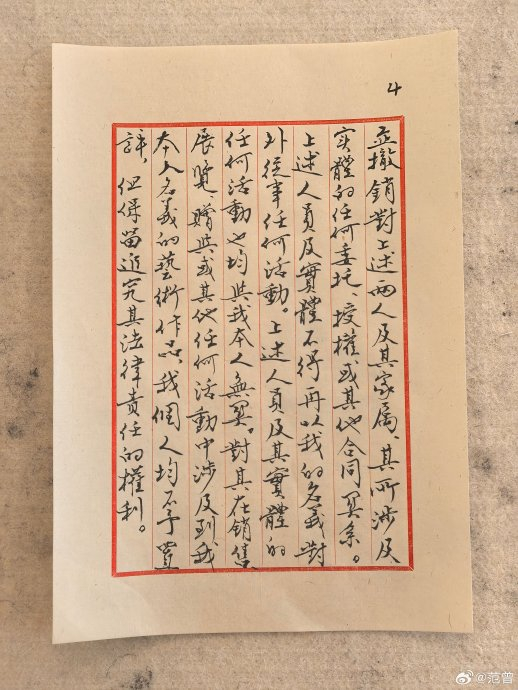 4
並撤銷對上述兩人及其家属、其所涉及
实體的任何委托、授權或其他合同関系。
上述人員及實體不得再以我的名義對
外從事任何活動。上述人員及其實體的
任何活動也均與我本人無関。對其在銷售
展覽、贈與或其他任何活動中涉及到我
本人名義的藝術作品我個人均不予置
評，但保留追究其法律責任的權利。
@范曾